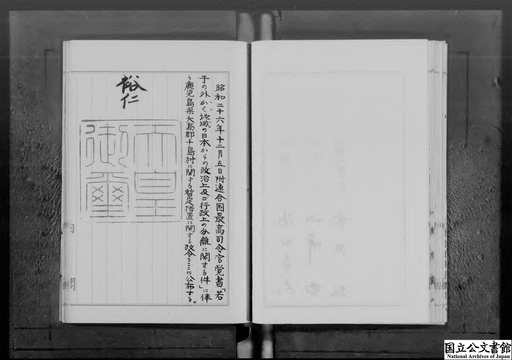 昭和二十六年十二月五日附連合国最高司令官覚書「若
干の外かく地域の日本からの政治上及び行政上の分離に関する件」に伴
う鹿児島県大島郡十島村に関する暫定措置に関する政令をここに公布する。
裕仁
天皇
御璽
国立公文書館
National Archives of Japan